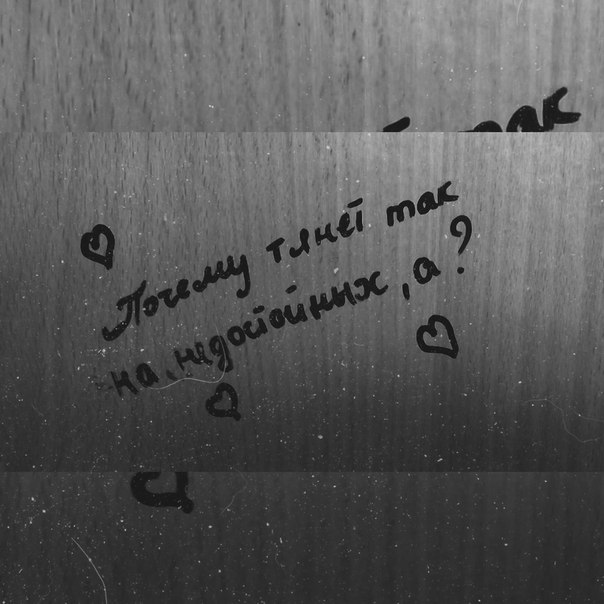 так
Почему тянет так
на недостойных, а?